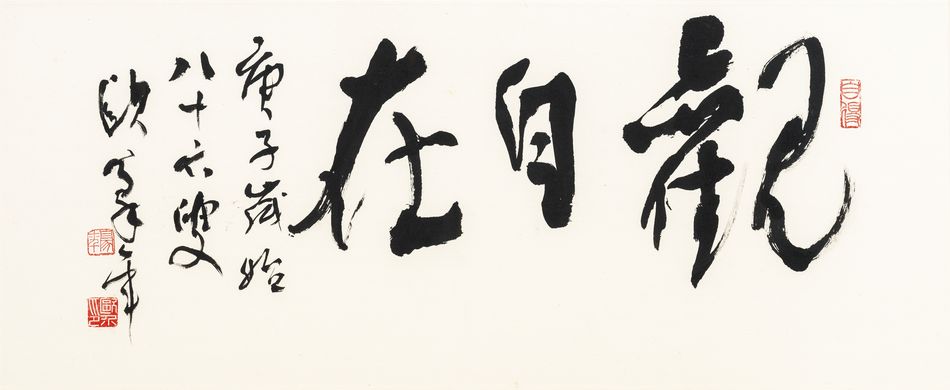 觀自在
庚子歲始
八十六叟
歐豪年
自得